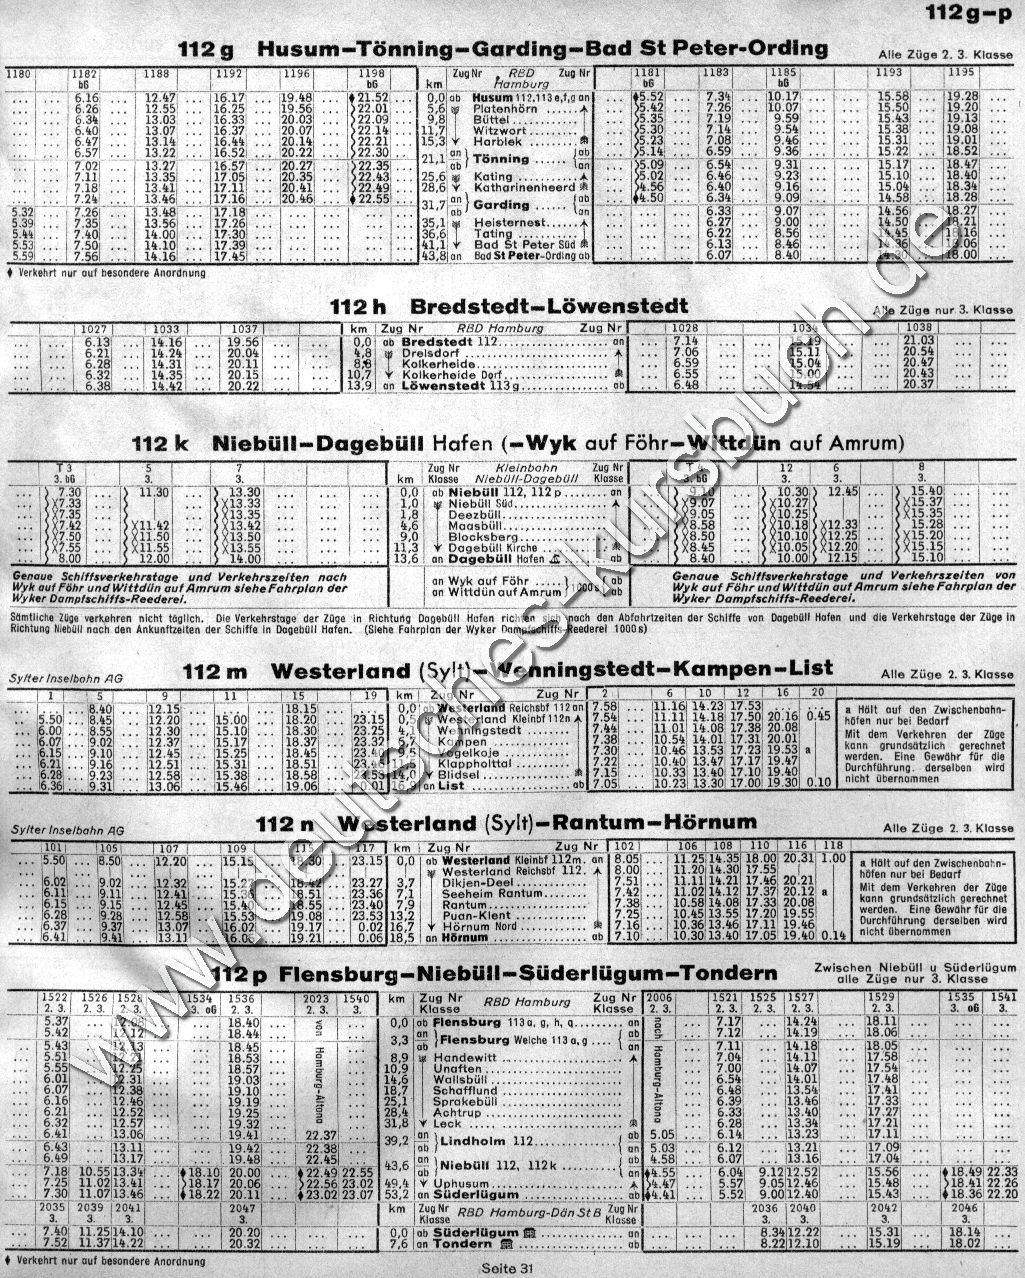 112 g–p
112 g Husum–Tönning–Garding–Bad St Peter-Ording Alle Züge 2. 3. Klasse
1180 1182 1188 1192 1196 1198 km Zug Nr RBD Zug Nr 1181 1183 1185 1193 1195
bG bG Hamburg bG bG
... 6.16 ... 12.47 ... 16.17 ... 19.48 ... ♦21.52 ... 0,0 ab Husum 112,113 e,f,g an ... ♦5.52 ... 7.34 ... 10.17 ... ... 15.58 ... 19.28
... 6.26 ... 12.55 ... 16.25 ... 19.56 ... 22.01 ... 5,6 Platenhörn ... 5.42 ... 7.26 ... 10.07 ... ... 15.50 ... 19.20
... 6.34 ... 13.03 ... 16.33 ... 20.03 ... 22.09 ... 9,8 Büttel ... 5.35 ... 7.19 ... 9.59 ... ... 15.43 ... 19.13
... 6.40 ... 13.07 ... 16.37 ... 20.07 ... 22.14 ... 11,7 Witzwort ... 5.30 ... 7.14 ... 9.54 ... ... 15.38 ... 19.08
... 6.47 ... 13.14 ... 16.44 ... 20.14 ... 22.21 ... 15,3 Harblek ... 5.23 ... 7.08 ... 9.46 ... ... 15.31 ... 19.01
... 6.57 ... 13.22 ... 16.52 ... 20.22 ... 22.30 ... 21,1 an Tönning ab ... 5.14 ... 6.59 ... 9.36 ... ... 15.22 ... 18.52
... 7.02 ... 13.27 ... 16.57 ... 20.27 ... 22.35 ... ab an ... 5.09 ... 6.54 ... 9.31 ... ... 15.17 ... 18.47
... 7.11 ... 13.35 ... 17.05 ... 20.35 ... 22.43 ... 25,6 Kating ... 5.02 ... 6.46 ... 9.23 ... ... 15.10 ... 18.40
... 7.18 ... 13.41 ... 17.11 ... 20.41 ... 22.49 ... 28,6 Katharinenheerd ... 4.56 ... 6.40 ... 9.16 ... ... 15.04 ... 18.34
... 7.24 ... 13.46 ... 17.16 ... 20.46 ... ♦22.55 ... 31,7 an Garding ab ... ♦4.50 ... 6.34 ... 9.09 ... ... 14.58 ... 18.28
5.32 7.26 ... 13.48 ... 17.18 ab an 6.33 ... 9.07 ... ... 14.56 ... 18.27
5.39 7.35 ... 13.56 ... 17.26 35,1 Heisternest 6.27 ... 9.00 ... ... 14.50 ... 18.21
5.44 7.40 ... 14.00 ... 17.30 36,6 Tating 6.22 ... 8.56 ... ... 14.45 ... 18.16
5.53 7.50 ... 14.10 ... 17.39 41,1 Bad St Peter Süd 6.13 ... 8.46 ... ... 14.36 ... 18.06
5.59 7.56 ... 14.16 ... 17.45 43,8 an Bad St Peter-Ording ab 6.07 ... 8.40 ... ... 14.30 ... 18.00
♦ Verkehrt nur auf besondere Anordnung
112 h Bredstedt–Löwenstedt Alle Züge nur 3. Klasse
1027 1033 1037 km Zug Nr RBD Hamburg Zug Nr 1028 1034 1038
6.13 14.16 19.56 0,0 ab Bredstedt 112 an 7.14 15.19 21.03
6.21 14.24 20.04 4,8 Drelsdorf 7.06 15.11 20.54
6.28 14.31 20.11 8,8 Kolkerheide 6.59 15.04 20.47
6.32 14.35 20.15 10,7 Kolkerheide Dorf 6.55 15.00 20.43
6.38 14.42 20.22 13,9 an Löwenstedt 113 g ab 6.48 14.54 20.37
112 k Niebüll–Dagebüll Hafen (–Wyk auf Föhr–Wittdün auf Amrum)
T 3 5 7 Zug Nr Kleinbahn Zug Nr T 4 12 6 8
3. bG 3. 3. km Klasse Niebüll-Dagebüll Klasse 3. bG 3. 3. 3.
7.30 11.30 13.30 0,0 ab Niebüll 112, 112 p an 9.10 10.30 12.45 15.40
x7.33 x13.33 1,0 Niebüll Süd x9.07 x10.27 x15.37
x7.35 x13.35 1,8 Deezbüll x9.05 x10.25 x15.35
x7.42 x11.42 x13.42 4,6 Maasbüll x8.58 x10.18 x12.33 15.28
x7.50 x11.50 x13.50 9,0 Blocksberg x8.50 x10.10 x12.25 x15.20
x7.55 x11.55 x13.55 11,3 Dagebüll Kirche x8.45 x10.05 x12.20 x15.15
8.00 12.00 14.00 13,6 an Dagebüll Hafen ab 8.40 10.00 12.15 15.10
Genaue Schiffsverkehrstage und Verkehrszeiten nach Wyk auf Föhr und Wittdün auf Amrum siehe Fahrplan der Wyker Dampfschiffs-Reederei.
an Wyk auf Föhr 1000 s ab
an Wittdün auf Amrum ab
Genaue Schiffsverkehrstage und Verkehrszeiten von Wyk auf Föhr und Wittdün auf Amrum siehe Fahrplan der Wyker Dampfschiffs-Reederei.
Sämtliche Züge verkehren nicht täglich. Die Verkehrstage der Züge in Richtung Dagebüll Hafen richten sich nach den Abfahrtzeiten der Schiffe von Dagebüll Hafen und die Verkehrstage der Züge in
Richtung Niebüll nach den Ankunftzeiten der Schiffe in Dagebüll Hafen. (Siehe Fahrplan der Wyker Dampfschiffs-Reederei 1000 s)
Sylter Inselbahn AG 112 m Westerland (Sylt)–Wenningstedt–Kampen–List Alle Züge 2. 3. Klasse
1 5 9 11 15 19 km Zug Nr Zug Nr 2 6 10 12 16 20
... 8.40 12.15 ... 18.15 ... 0,0 ab Westerland Reichsbf 112 an 7.58 11.16 14.23 17.53
5.50 8.45 12.20 15.00 18.20 23.15 0,5 Westerland Kleinbf 112n 7.54 11.11 14.18 17.50 20.16 0.45
6.00 8.55 12.30 15.10 18.30 23.25 4,1 Wenningstedt 7.44 11.01 14.08 17.38 20.08
6.07 9.02 12.37 15.17 18.37 23.32 5,7 Kampen 7.38 10.54 14.01 17.31 20.01
6.15 9.10 12.45 15.25 18.45 Vogelkoje 7.30 10.46 13.53 17.23 19.53 a
6.21 9.16 12.51 15.31 18.51 Klappholttal 7.22 10.40 13.47 17.17 19.47
6.28 9.23 12.58 15.38 18.58 23.53 14,0 Blidsel 7.15 10.33 13.40 17.10 19.40
6.36 9.31 13.06 15.46 19.06 0.01 16,9 an List ab 7.05 10.23 13.30 17.00 19.30 0.10
a Hält auf den Zwischenbahnhöfen nur bei Bedarf
Mit dem Verkehren der Züge kann grundsätzlich gerechnet werden. Eine Gewähr für die Durchführung derselben wird nicht übernommen
Sylter Inselbahn AG 112 n Westerland (Sylt)–Rantum–Hörnum Alle Züge 2. 3. Klasse
101 105 107 109 115 117 km Zug Nr Zug Nr 102 106 108 110 116 118
5.50 8.50 12.20 15.15 18.30 23.15 0,0 ab Westerland Kleinbf 112m an 8.05 11.25 14.35 18.00 20.31 1.00
Westerland Reichsbf 112 8.00 11.20 14.30 17.55
6.02 9.02 12.32 15.27 18.42 23.27 3,7 Dikjen-Deel 7.51 11.11 14.21 17.46 20.21
6.11 9.11 12.41 15.36 18.51 23.36 7,1 Seeheim Rantum 7.42 11.02 14.12 17.37 20.12 a
6.15 9.15 12.45 15.40 18.55 23.40 7,9 Rantum 7.38 10.58 14.08 17.33 20.08
6.28 9.28 12.58 15.53 19.08 23.53 13,2 Puan-Klent 7.25 10.45 13.55 17.20 19.55
6.37 9.37 13.07 16.02 19.17 0.02 16,7 Hörnum Nord 7.16 10.36 13.46 17.11 19.46
6.41 9.41 13.11 16.06 19.21 0.06 18,5 an Hörnum ab 7.10 10.30 13.40 17.05 19.40 0.14
a Hält auf den Zwischenbahnhöfen nur bei Bedarf
Mit dem Verkehren der Züge kann grundsätzlich gerechnet werden. Eine Gewähr für die Durchführung derselben wird nicht übernommen
112 p Flensburg–Niebüll–Süderlügum–Tondern Zwischen Niebüll u Süderlügum alle Züge nur 3. Klasse
1522 1526 1528 1534 1536 2023 1540 km Zug Nr RBD Hamburg Zug Nr 2006 1521 1525 1527 1529 1535 1541
2. 3. 2. 3. 2. 3. 3. oG 2. 3. 2. 3. 2. 3. Klasse Klasse 2. 3. 2. 3. 2. 3. 2. 3. 2. 3. 3. oG 2. 3.
von Hamburg-Altona
nach Hamburg-Altona
5.37 12.08 18.40 0,0 ab Flensburg 113 a, g, h, q an 7.17 14.24 18.11
5.42 12.12 18.44 3,3 an Flensburg Weiche 113 a, g ab 7.12 14.19 18.06
5.43 12.13 18.45 ab an 7.11 14.18 18.05
5.51 12.21 18.53 8,9 Handewitt 7.04 14.11 17.58
5.55 12.25 18.57 10,9 Unaften 7.00 14.07 17.54
6.01 12.31 19.03 14,6 Wallsbüll 6.54 14.01 17.48
6.07 12.38 19.10 18,7 Schafflund 6.48 13.54 17.41
6.16 12.46 19.19 25,1 Sprakebüll 6.39 13.46 17.33
6.21 12.52 19.25 28,4 Achtrup 6.33 13.40 17.27
6.32 12.57 19.32 31,8 Leck 6.28 13.34 17.21
6.41 13.06 19.41 22.37 39,2 an Lindholm 112 ab 5.05 6.14 13.23 17.11
6.43 13.11 19.42 22.38 ab an 5.03 6.12 13.21 17.09
6.49 13.17 19.48 22.45 43,6 an Niebüll 112, 112 k ab 4.58 6.07 13.16 17.04
7.18 10.55 13.34 ♦18.10 20.00 ♦22.49 22.55 ab an ♦4.55 6.04 9.12 12.52 15.56 ♦18.49 22.33
7.25 11.02 13.41 18.17 20.06 22.56 23.02 49,4 Uphusum 4.47 5.57 9.05 12.46 15.48 18.41 22.26
7.30 11.07 13.46 ♦18.22 20.11 ♦23.02 23.07 53,2 an Süderlügum ab ♦4.41 5.52 9.00 12.40 15.43 ♦18.36 22.20
2035 2039 2041 2047 km Zug Nr RBD Hamburg-Dän St B Zug Nr 2036 2040 2042 2046
3. 3. 3. 3. Klasse Klasse 3. 3. 3. 3.
7.40 11.25 14.10 20.20 0,0 ab Süderlügum an 8.34 12.22 15.31 18.14
7.52 11.37 14.22 20.32 7,6 an Tondern ab 8.22 12.10 15.19 18.02
♦ Verkehrt nur auf besondere Anordnung
Seite 31
www.deutsches-kursbuch.de